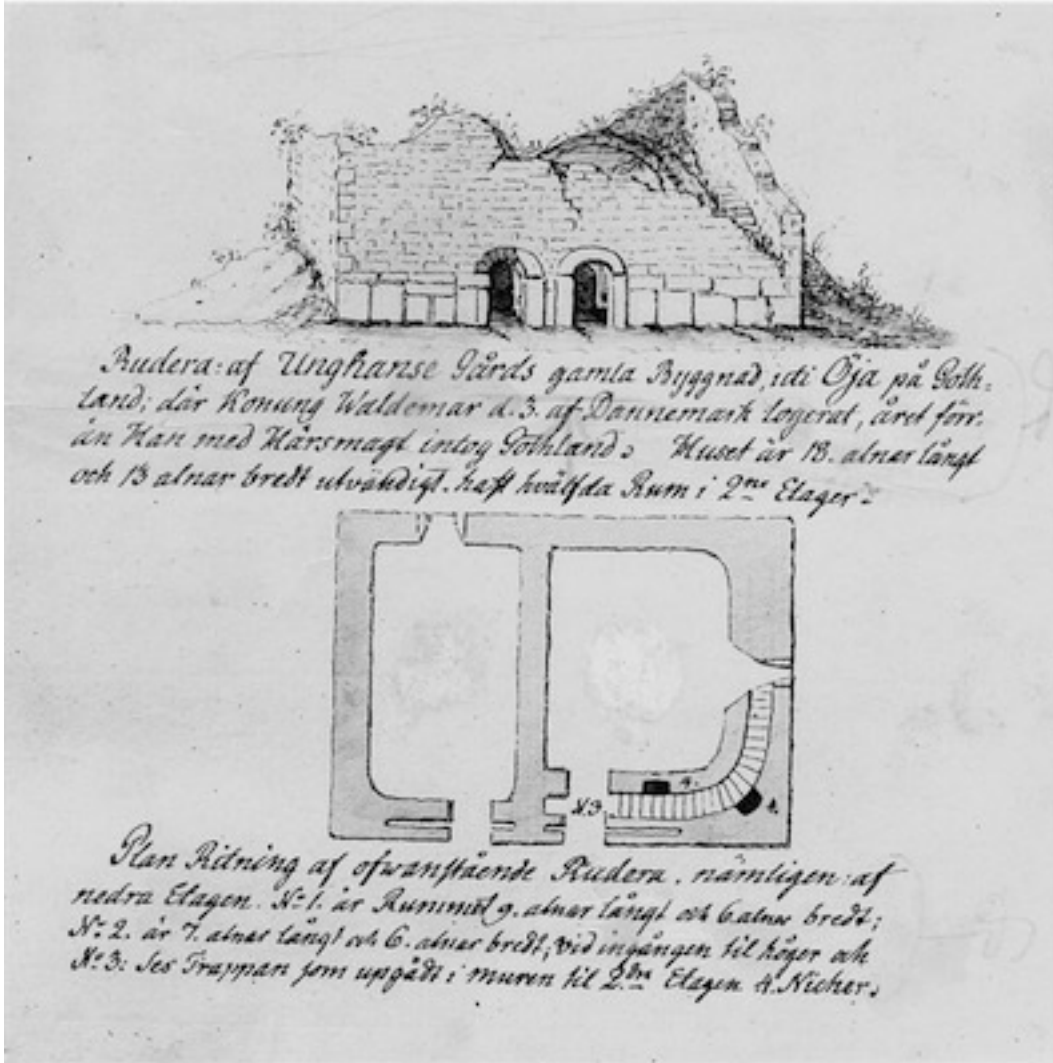 Rudera: af Unghanse Gårds gamla Byggnad, uti Öja på Goth=
land; där Konung Waldemar d. 3. af Dannemark logerat, året förr.
än Han med Härsmagt intog Gothland. Huset är 18. alnar långt
och 13 alnar bredt utvändigt. haft hvälfda Rum i 2ne Etager.
N.3.
4.
4.
Plan Ritning af ofwanstående Rudera. nämligen: af
nedra Etagen. No 1. är Rummet 9. alnar långt och 6. alnar bredt;
No 2. är 7. alnar långt och 6. alnar bredt; vid ingången til höger och
No 3: ses Trappan som upgådt i muren til 2dra Etagen 4. Nicher.